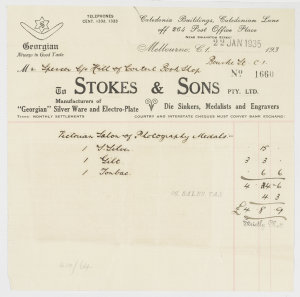 TELEPHONES
CENT. 1332, 1333
Caledonia Buildings, Caledonian Lane
off 264 Post Office Place
NEAR SWANSTON STREET
Georgian
Always in Good Taste
Melbourne, C.1. 22 JAN 1935 193
Mr Spencer c/o Hall of Content Book Shop
Bourke St C1
No 1660
To STOKES & SONS PTY. LTD.
Manufacturers of
"Georgian" Silver Ware and Electro-Plate
Die Sinkers, Medalists and Engravers
TERMS: MONTHLY SETTLEMENTS
COUNTRY AND INTERSTATE CHEQUES MUST CONVEY BANK EXCHANGE
Victorian Salon of Photography Medals
1 S Silver 15
1 Gilt 3 3
1 Tombac 6 6
4 4 6
5% SALES TAX 4 3
£ 4 8 9